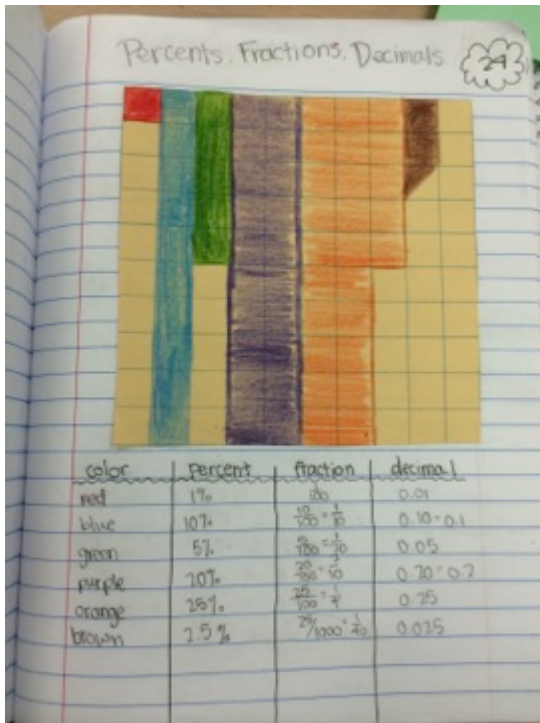 Percents. Fractions. Decimals 24
color percent fraction decimal
red 1% 1/100 0.01
blue 10% 10/100 = 1/10 0.10 = 0.1
green 5% 5/100 = 1/20 0.05
purple 20% 20/100 = 2/10 0.20 = 0.2
orange 25% 25/100 = 1/4 0.25
brown 2.5% 25/1000 = 1/40 0.025